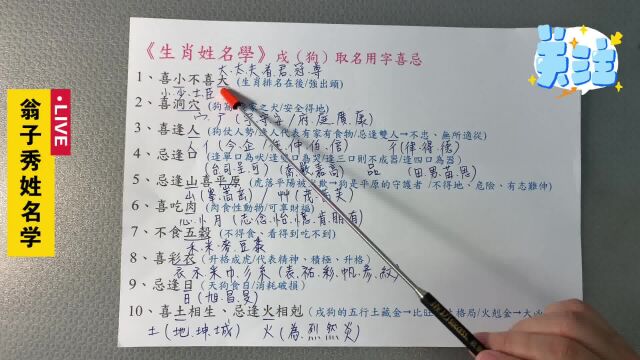 关注
LIVE
翁子秀姓名学
《生肖姓名學》戌(狗)取名用字喜忌
1、喜小不喜大 (生肖排名在後/強出頭)
大、太夫君冠尊
小少士臣
2、喜洞穴 (狗
/安全得地)
宀 广 府庭廣康)
3、喜逢人 (狗仗人勢/逢人代表有家有食物/忌逢雙人→不忠、無所適從)
人亻(今企/任仲伯信) 彳(律得德)
4、忌逢口 (逢單口為吠/逢 口為哭/逢三口則不成器/逢四口為器)
品 (田男苗思)
5、忌逢山喜平原 (虎落平陽被 欺→狗是平原的守護者 /不得地、危險、有志難伸)
山 艹
6、喜吃肉 (肉食性動物/可享財福)
心忄月 (志念怡 肯
7、不食五穀 (不得食、看得到吃不到)
禾米麥豆
8、喜彩衣 (升格成虎/代表精神、積極、升格)
衣 采巾彡系 (表 彩帆彥紋)
9、忌逢日 (天狗食日/消耗破損)
日(旭昌曼)
10、喜土相生、忌逢火相剋 (戌狗的五行土藏金→比旺 格局/火剋金→大凶
土(地坤城) 火(為烈然炎)